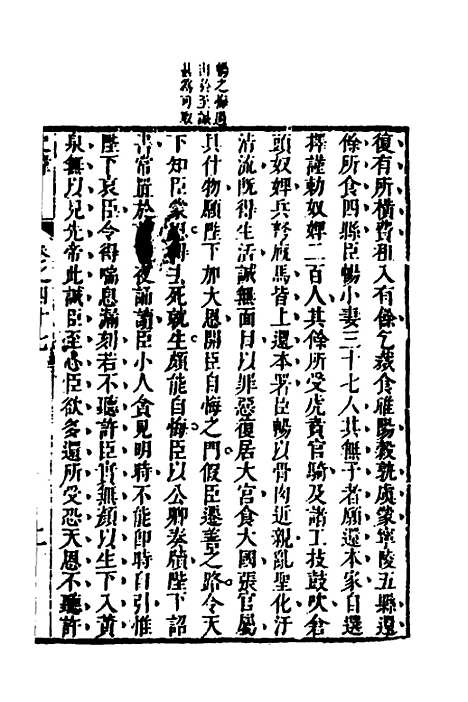 暢之悔過
出於至誠
甚爲可取
復有所橫費租入有餘乞裁食睢陽穀孰虞蒙寧陵五縣還
餘所食四縣臣暢小妻三十七人其無子者願還本家自選
擇謹勅奴婢二百人其餘所受虎賁官騎及諸工技鼓吹倉
頭奴婢兵弩廄馬皆上還本署臣暢以骨肉近親亂聖化汙
清流旣得生活誠無面目以罪惡復居大宮食大國張官屬
具什物願陛下加大恩開臣自悔之門假臣遷善之路令天
下知臣蒙恩得去死就生頗能自悔臣以公卿奏牘陛下詔
書常置於前夜誦讀臣小人貪見明時不能卽時自引惟
陛下哀臣令得喘息漏刻若不聽許臣實無顔以生下入黃
泉無以見先帝此誠臣至心臣欲多還所受恐天恩不聽許
卷之四十七